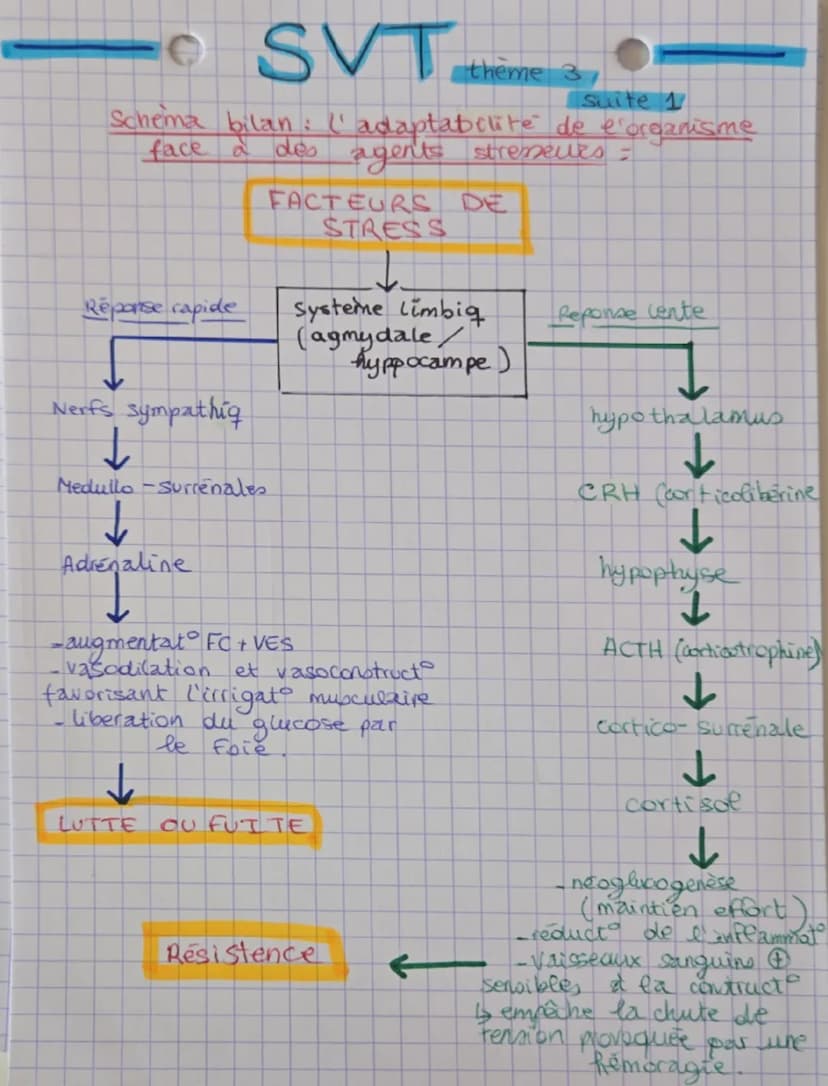 SVT
thème 3,
suite 1
Schéma bilan : l'adaptabilité de l'organisme
face à des agents stresseurs =
FACTEURS DE
STRESS
Système limbiq
(agmydale /
hyppocampe)
Réponse rapide
Nerfs sympathiq
Medullo-surrénales
Adrénaline
-augmentat° FC + VES
-vasodilation et vasoconstruct°
favorisant l'irrigat° musculaire
-liberation du glucose par
le Foie.
LUTTE OU FUITE
Reponse lente
hypothalamus
CRH (corticolibérine
hypophyse
ACTH (corticotrophine)
cortico-surrénale
cortisol
-néoglucogenèse
(maintien effort)
-réduct° de l'inflammat°
-vaisseaux sanguins ⊕
sensibles à la contruct°
↳ empêche la chute de
tension provoquée par une
hémoragie.
Résistence